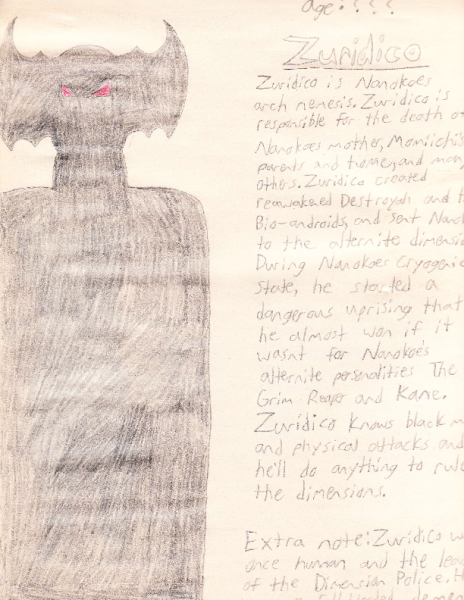 age: ? ? ?
Zuridico
Zuridico is Nanokoes
arch nemesis. Zuridico is
responsible for the death o
Nanokoes mother, Momiichi's
parents and home, and many
others. Zuridico created
reawakened Destroyah and t
Bio-androids, and sent Nano
to the alternite dimensi
During Nanokoes Cryogenic
state, he started a
dangerous uprising that
he almost won if it
wasnt for Nanokoe's
alternite personalities The
Grim Reaper and Kane.
Zuridico knows black m
and physical attacks and
he'll do anything to rule
the dimensions.
Extra note: Zuridico w
once human and the lea
of the Dimension Police. H